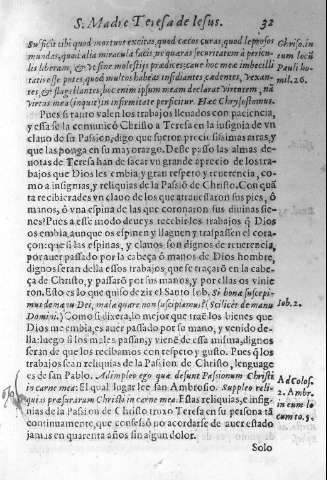 S. Madre Teresa de Iesus. 32
Sufficit tibi quod mortuos excitas, quod cæcos curas, quod leprosos
mundas, quod alia miracula facis, ne quæras securitatem à pericu-
lis liberam, & ut sine molestijs prædices, caue hoc meæ imbecilli
tatis esse putes, quod multos habeas insidiantes, cædentes, vexan-
tes, & flagellantes, hoc enim ipsum meam declarat virtutem, nã
virtus mea (inquit) in infirmitate perficitur. Hæc Chrysostomus.
Chriso. in
rum locũ
Pauli ho-
mil. 26.
Pues si tanto valen los trabajos lleuados con paciencia,
y essa se la comunicò Christo a Teresa en la insignia de vn
clauo de su Passion, digo que fueron preciosissimas arras, y
que las ponga en su mayorazgo. Desse passo las almas de-
uotas de Teresa han de sacar vn grande aprecio de los tra-
bajos que Dios les embia, y gran respeto y reuerencia, co-
mo a insignias, y reliquias de la Passiõ de Christo. Con quã
ta recibierades vn clauo de los que atrauessaron sus pies, ò
manos, ò vna espina de las que coronaron sus diuinas sie-
nes? Pues a esse modo deueys recebir los trabajos q̃ Dios
os embia, aunque os espinen y llaguen y traspassen el cora-
çon: que si las espinas, y clauos son dignos de reuerencia,
por auer passado por la cabeça ò manos de Dios hombre,
dignos seran della essos trabajos, que se traçarõ en la cabe-
ça de Christo, y passarõ por sus manos, y por ellas os vinie
ron. Esto es lo que quiso dezir el Santo Iob. Si bona suscepi-
mus de manu Dei, mala quare non suscipiamus? (Scilicet de manu
Iob. 2.
Domini.) Como si dixera, lo mejor que traẽ los bienes que
Dios me embia, es auer passado por su mano, y venido de-
lla: luego si los males passan, y vienẽ de essa misma, dignos
seràn de que los recibamos con respeto y gusto. Pues q̃ los
trabajos sean reliquias de la Passion de Christo, lenguage
es de san Pablo. Adimpleo ego quæ desunt Passionum Christi
in carne mea: El qual lugar lee san Ambrosio. Suppleo reli-
quias præssurarum Christi in carne mea. Estas reliquias, e insig-
Ad Colos.
2. Ambr.
in eum lo
cum to. 5.
nias de la Passion de Christo truxo Teresa en su persona tã
continuamente, que confessò no acordarse de auer estado
jamas en quarenta años sin algun dolor.
Solo